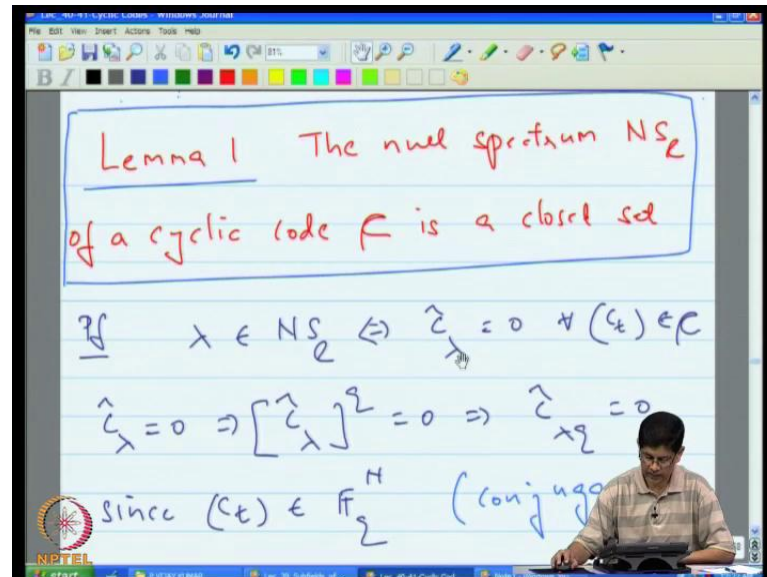 Lec_40-41-Cyclic Codes - Windows Journal
File Edit View Insert Actions Tools Help
81%
B I
Lemma 1 The null spectrum NS_C
of a cyclic code C is a closed set
Pf λ ∈ NS_C ⇔ ĉ_λ = 0 ∀ (c_t) ∈ C
ĉ_λ = 0 ⇒ [ĉ_λ]^q = 0 ⇒ ĉ_λq = 0
since (c_t) ∈ F_q^N (conjuga
NPTEL
start